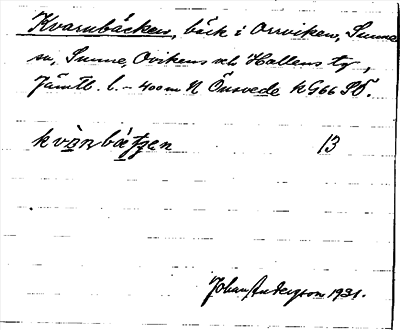 Kvarnbäcken, bäck i Orrviken, Sunne
sn, Sunne, Ovikens och Hallens tg,
Jämtl. l. – 400 m N Önsvede k G66 SO.
kvànbätjen 13
Johan Anderson 1931.